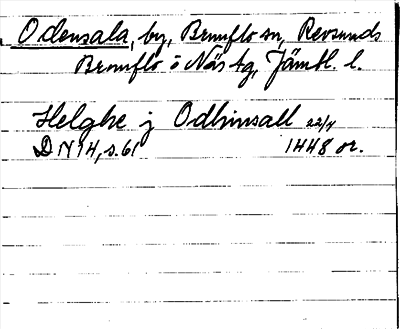 Odensala, by, Brunflo sn, Revsunds
Brunflo o Näs tg, Jämtl. l.
Helghe j Odhinsall 22/4
DN 14, s. 61 1448 or.